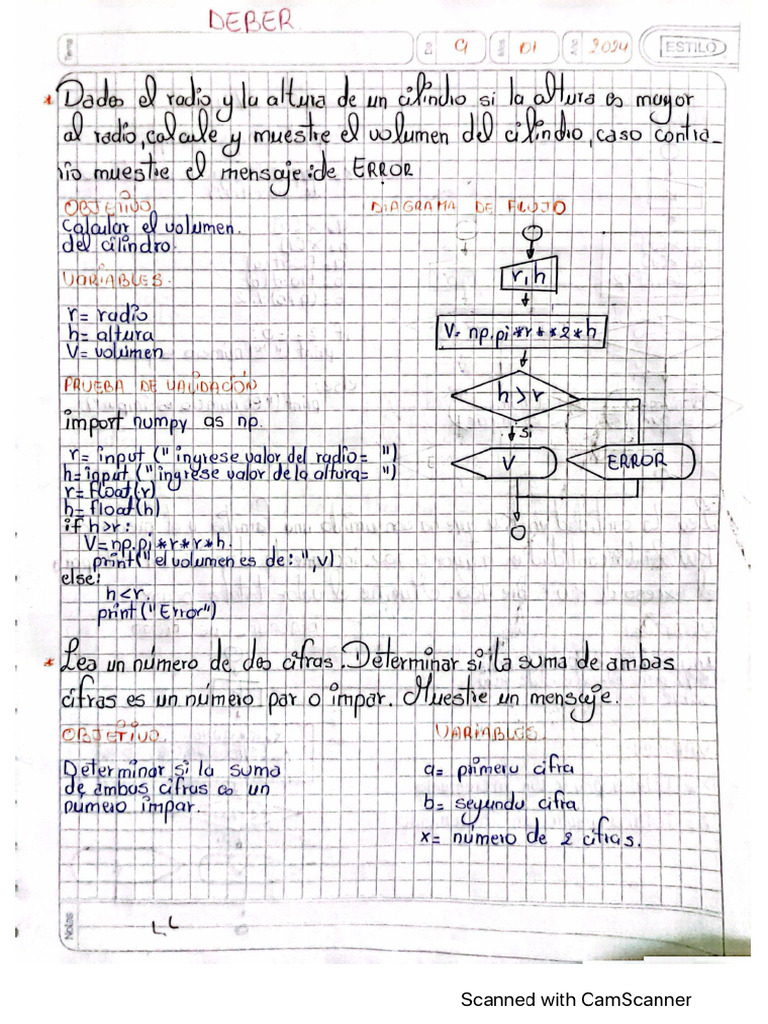 DEBER
Tema Día 9 Mes 01 Año 2024 ESTILO
* Dados el radio y la altura de un cilindro si la altura es mayor
al radio, calcule y muestre el volumen del cilindro, caso contra_
rio muestre el mensaje: de ERROR
OBJETIVO
Calcular el volumen.
del cilindro.
VARIABLES.
r= radio
h= altura
V= volumen
PRUEBA DE VALIDACIÓN
import numpy as np.
r= input ("ingrese valor del radio= ")
h= input ("ingrese valor de la altura= ")
r= float(r)
h= float(h)
if h>r:
V=np.pi*r*r*h.
print("el volumen es de: ",v)
else:
h<r.
print ("Error")
DIAGRAMA DE FLUJO
r, h
V= np.pi*r**2*h
h>r
si
V
ERROR
* Lea un número de dos cifras. Determinar si la suma de ambas
cifras es un número par o impar. Muestre un mensaje.
OBJETIVO.
Determinar si la suma
de ambas cifras es un
número impar.
VARIABLES.
a= primera cifra
b= segunda cifra
x= número de 2 cifras.
Notas
Scanned with CamScanner